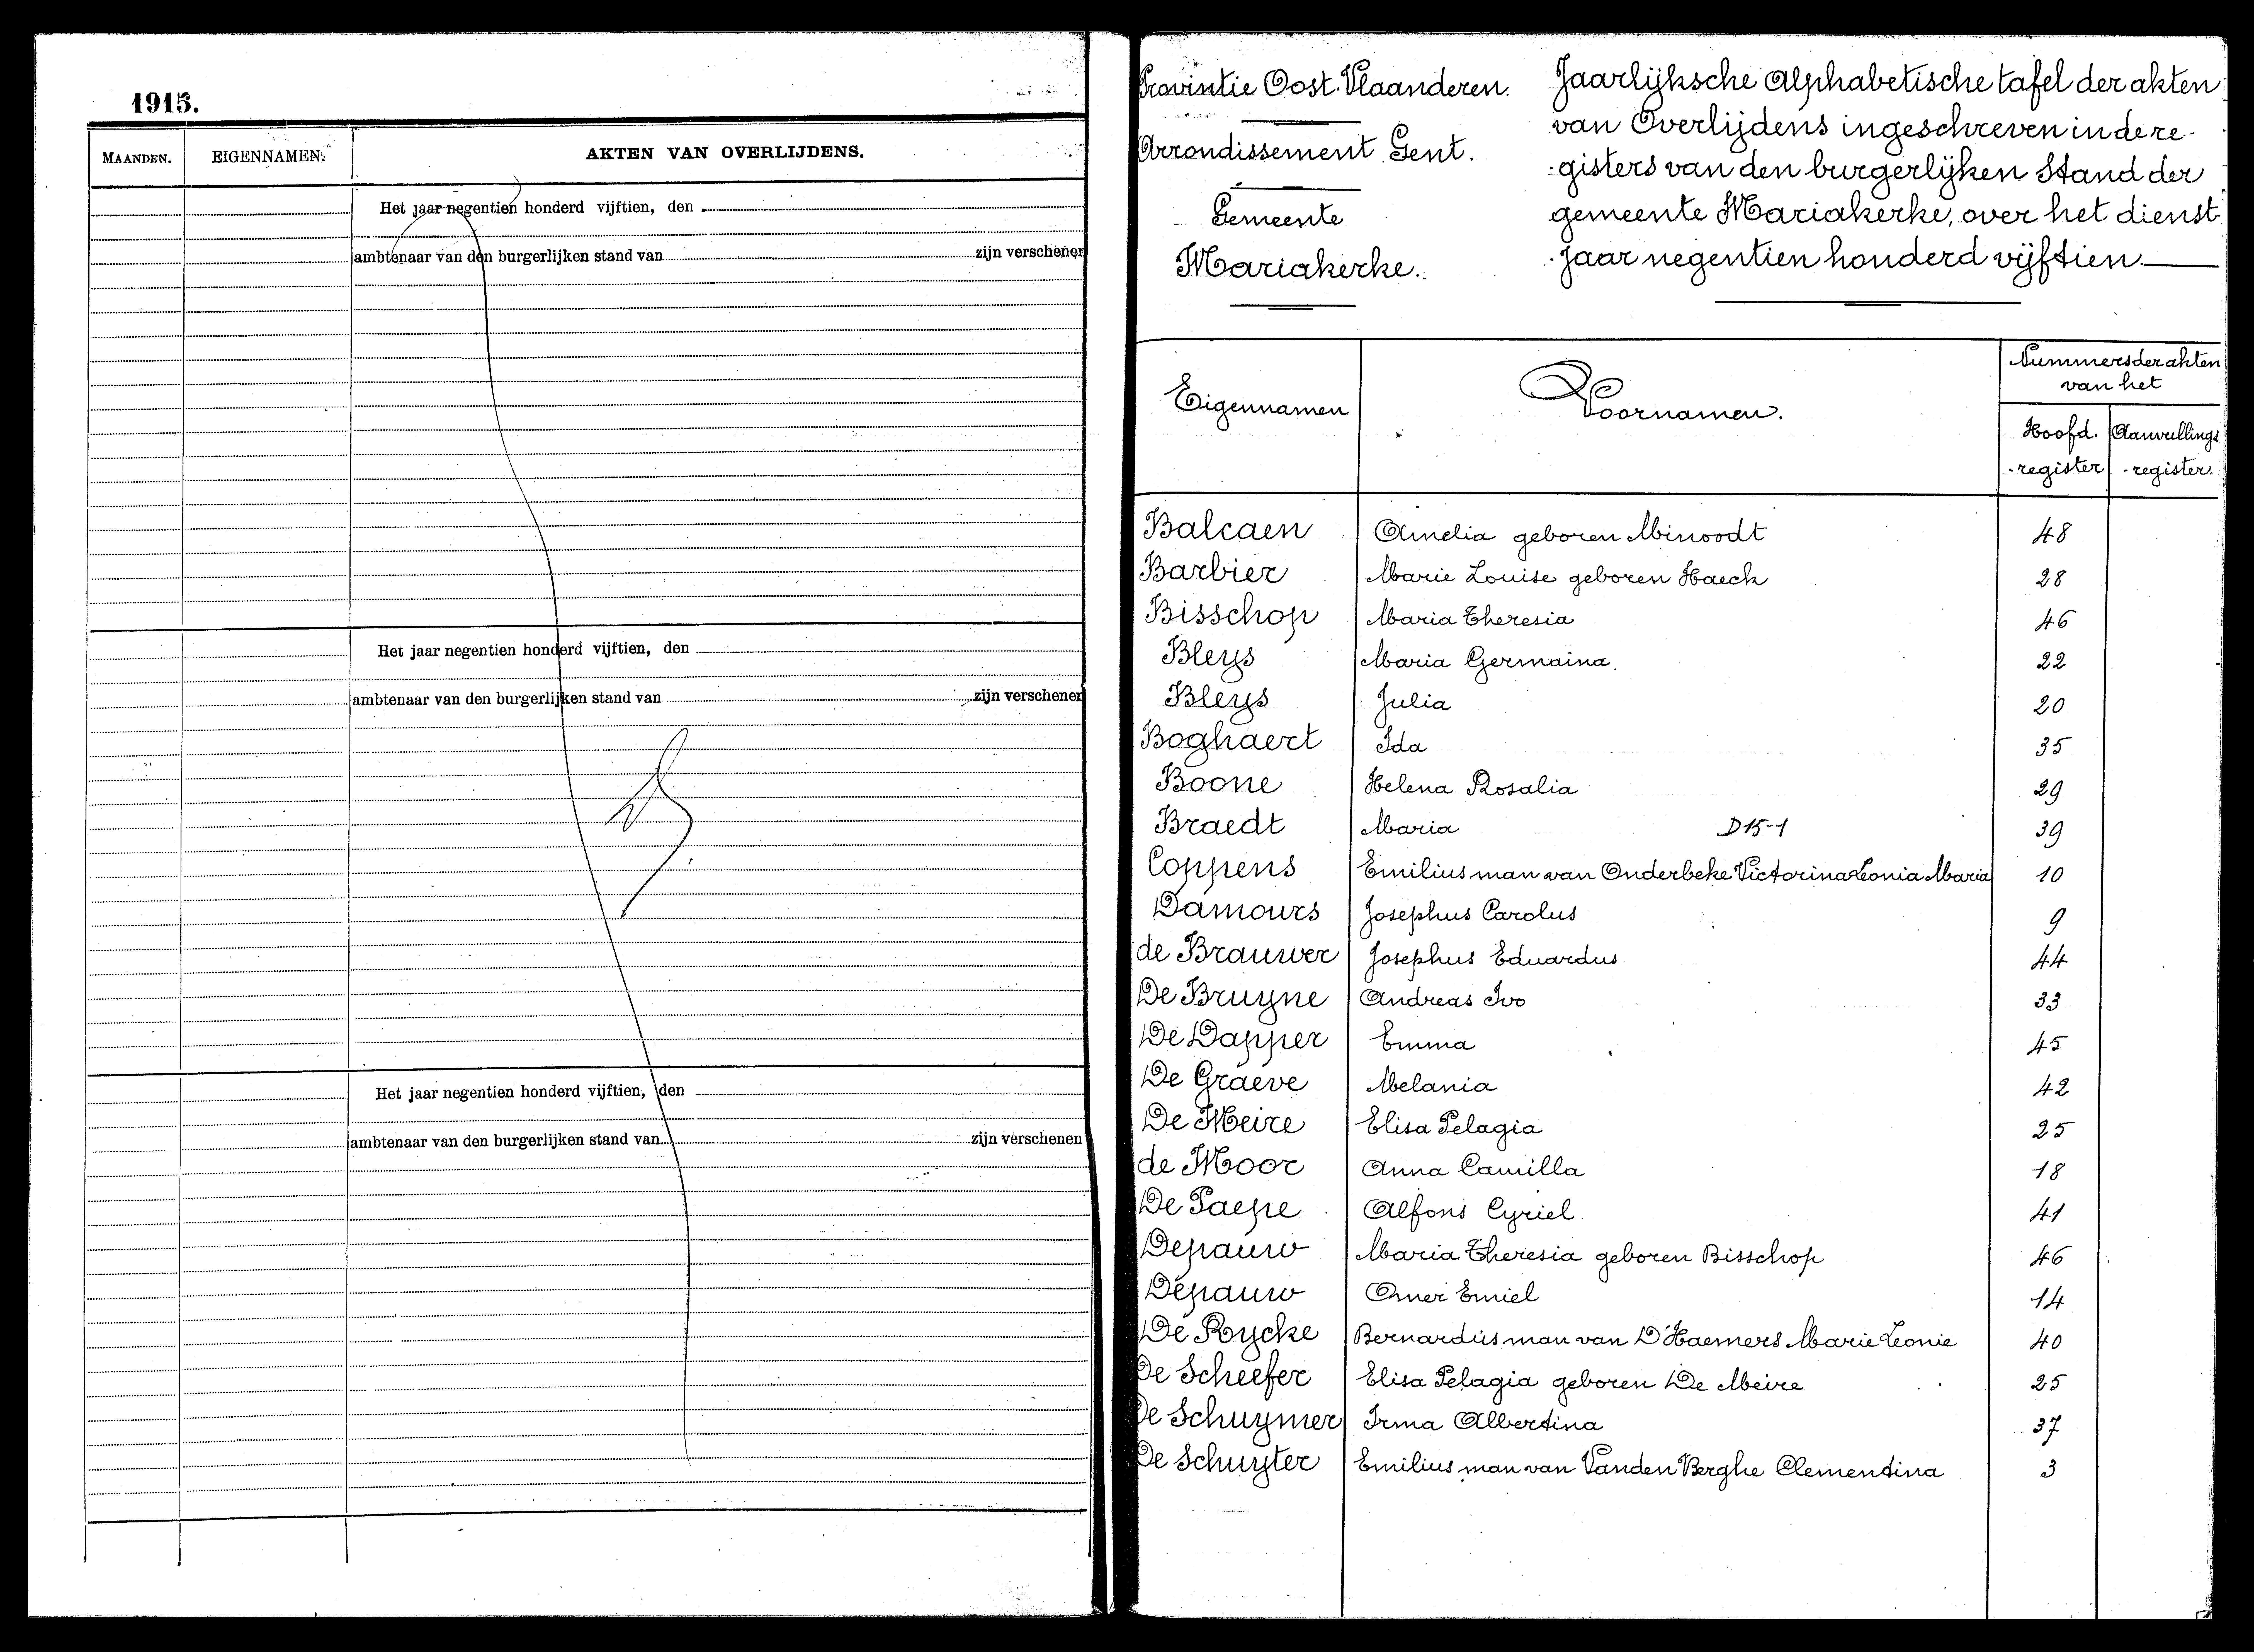 1915.
MAANDEN. EIGENNAMEN. AKTEN VAN OVERLIJDENS.
Het jaar negentien honderd vijftien, den
ambtenaar van den burgerlijken stand van zijn verschenen
Het jaar negentien honderd vijftien, den
ambtenaar van den burgerlijken stand van zijn verschenen
Het jaar negentien honderd vijftien, den
ambtenaar van den burgerlijken stand van zijn verschenen
Provintie Oost-Vlaanderen.
Arrondissement Gent.
Gemeente
Mariakerke.
Jaarlijksche Alphabetische tafel der akten
van Overlijdens ingeschreven in de re-
-gisters van den burgerlijken Stand der
gemeente Mariakerke, over het dienst-
-jaar negentien honderd vijftien.
Eigennamen Voornamen. Nummers der akten
van het
Hoofd- Aanvullings
-register -register.
Balcaen Amelia geboren Minoodt 48
Barbier Marie Louise geboren Haeck 28
Bisschop Maria Theresia 46
Bleys Maria Germaina. 22
Bleys Julia 20
Boghaert Ida 35
Boone Helena Rosalia 29
Braedt Maria D15-1 39
Coppens Emilius man van Onderbeke Victorina Leonia Maria 10
Damours Josephus Carolus 9
de Brauwer Josephus Eduardus 44
De Bruyne Andreas Ivo 33
De Dapper Emma 45
De Graeve Melania 42
De Meire Elisa Pelagia 25
de Moor Anna Camilla 18
De Paepe Alfons Cyriel. 41
Depauw Maria Theresia geboren Bisschop 46
Depauw Omer Emiel 14
De Rycke Bernardus man van D'Haemers Marie Leonie 40
De Scheefer Elisa Pelagia geboren De Meire 25
De Schuymer Irma Albertina 37
De Schuyter Emilius man van Vanden Berghe Clementina 3